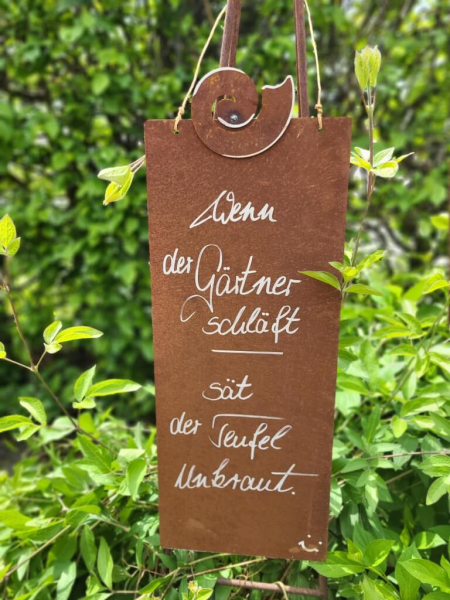 Wenn
der Gärtner
schläft
sät
der Teufel
Unkraut.